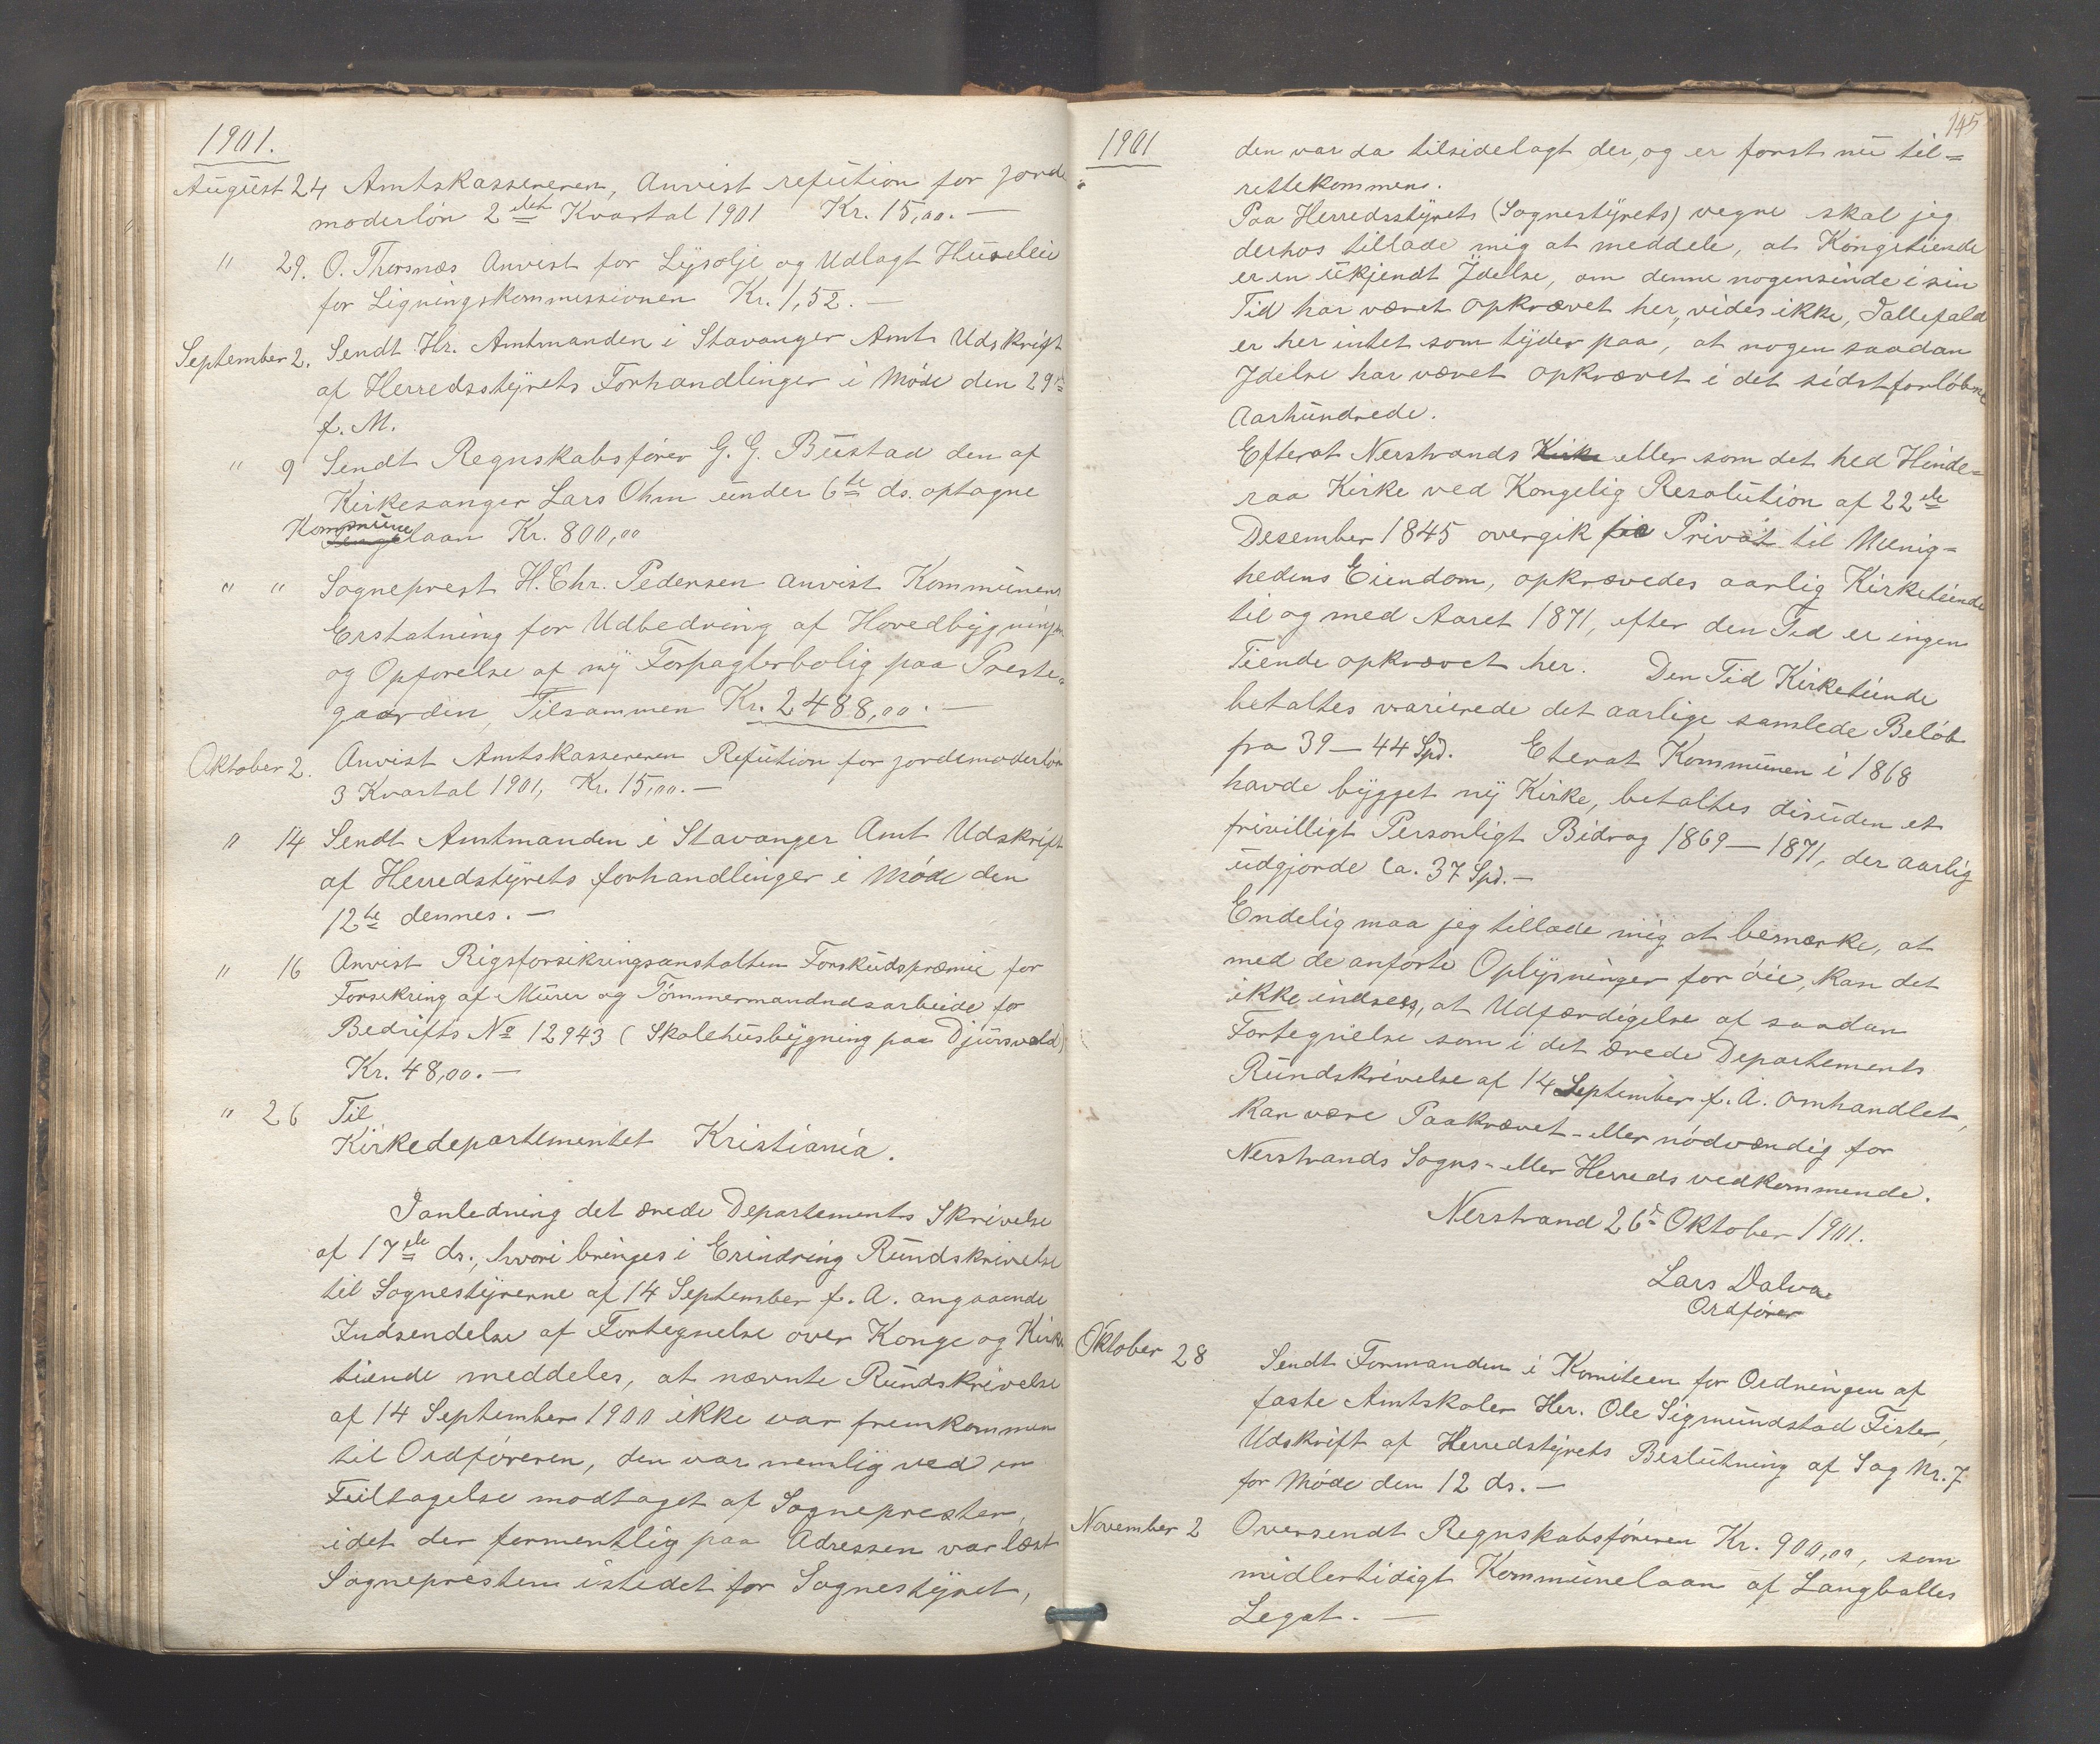 1901.
August 24 Amtskassereren, Anvist refution for jorde
moderløn 2det Kvartal 1901 Kr. 15,00. —
" 29. O. Thorsnæs Anvist for Lysolje og Udlagt Husleie
for Ligningskommissionen Kr. 1,52. —
September 2. Sendt Hr. Amtmanden i Stavanger Amt Udskrift
af Herredsstyrets Forhandlinger i Møde den 29de
f. M.
" 9 Sendt Regnskabsfører G. G. Bustad den af
Kirkesanger Lars Ohm under 6te ds. optagne
Kommunelaan Kr. 800,00
" " Sogneprest H. Chr. Pedersen anvist Kommunens
Erstatning for Udbedring af Hovedbygningen
og Opførelse af ny Forpagterbolig paa Preste-
gaarden, Tilsammen Kr. 2488,00. —
Oktober 2. Anvist Amtskassereren Refution for jordemoderløn
3 Kvartal 1901, Kr. 15,00. —
" 14 Sendt Amtmanden i Stavanger Amt Udskrift
af Herredstyrets forhandlinger i Møde den
12te dennes. —
" 16 Anvist Rigsforsikringsanstalten Forskudspræmie for
Forsekring af Murer og Tømmermandndsarbeide for
Bedrifts No 12943 (Skolehusbygning paa Djursvold)
Kr. 48,00. —
" 26 Til
Kirkedepartementet Kristiania.
Ianledning det ærede Departements Skrivelse
af 17de ds., hvori bringes i Erindring Rundskrivelse
til Sognestyrerne af 14 September f. A. angaaende
Indsendelse af Fortegnelse over Konge og Kirke
tiende meddeles, at nævnte Rundskrivelse
af 14 September 1900 ikke var fremkommen
til Ordføreren, den var nemlig ved en
Feiltagelse modtaget af Sognepresten,
idet der formentlig paa Adressen var læst
Sognepresten istedet for Sognestyret,
145
1901
den var da tilsidelagt der, og er først nu til=
rettekommen.
Paa Herredsstyrets (Sognestyrets) vegne skal jeg
derhos tillade mig at meddele, at Kongetiende
er en ukjendt Ydelse, om denne nogensinde i sin
Tid har været opkrævet her, vides ikke, Iallefald
er her intet som tyder paa, at nogen saadan
Ydelse har været opkrævet i det sidstforløbne
Aarhundrede.
Efterat Nerstrands Kirke eller som det hed Hinde=
raa Kirke ved Kongelig Resolution af 22de
Desember 1845 overgik fra Privat til Menig=
hedens Eiendom, opkrævedes aarlig Kirketiende
til og med Aaret 1871, efter den Tid er ingen
Tiende opkrævet her. Den Tid Kirketiende
betaltes varierede det aarlige samlede Beløb
fra 39 — 44 Spd. Eterat Kommunen i 1868
havde bygget ny Kirke, betaltes disuden et
frivilligt Personligt Bidrag 1869 — 1871, der aarlig
udgjorde ca. 37 Spd. —
Endelig maa jeg tillade mig at bemærke, at
med de anførte Oplysninger for øie, kan det
ikke indsees, at Udfærdigelse af saadan
Fortegnelse som i det ærede Departements
Rundskrivelse af 14 September f. A. omhandlet,
kan være Paakrævet - eller nødvændig for
Nerstrands Sogns - eller Herreds vedkommende.
Nerstrand 26de Oktober 1901.
Lars Dalva
Ordfører
Oktober 28 Sendt Formanden i Komiteen for Ordningen af
faste Amtskoler Her. Ole Sigmundstad Fister,
Udskrift af Herredstyrets Beslutning af Sag Nr. 7
for Møde den 12 ds. —
November 2 Oversendt Regnskabsføreren Kr. 900,00, som
midlertidigt Kommunelaan af Langballes
Legat. —